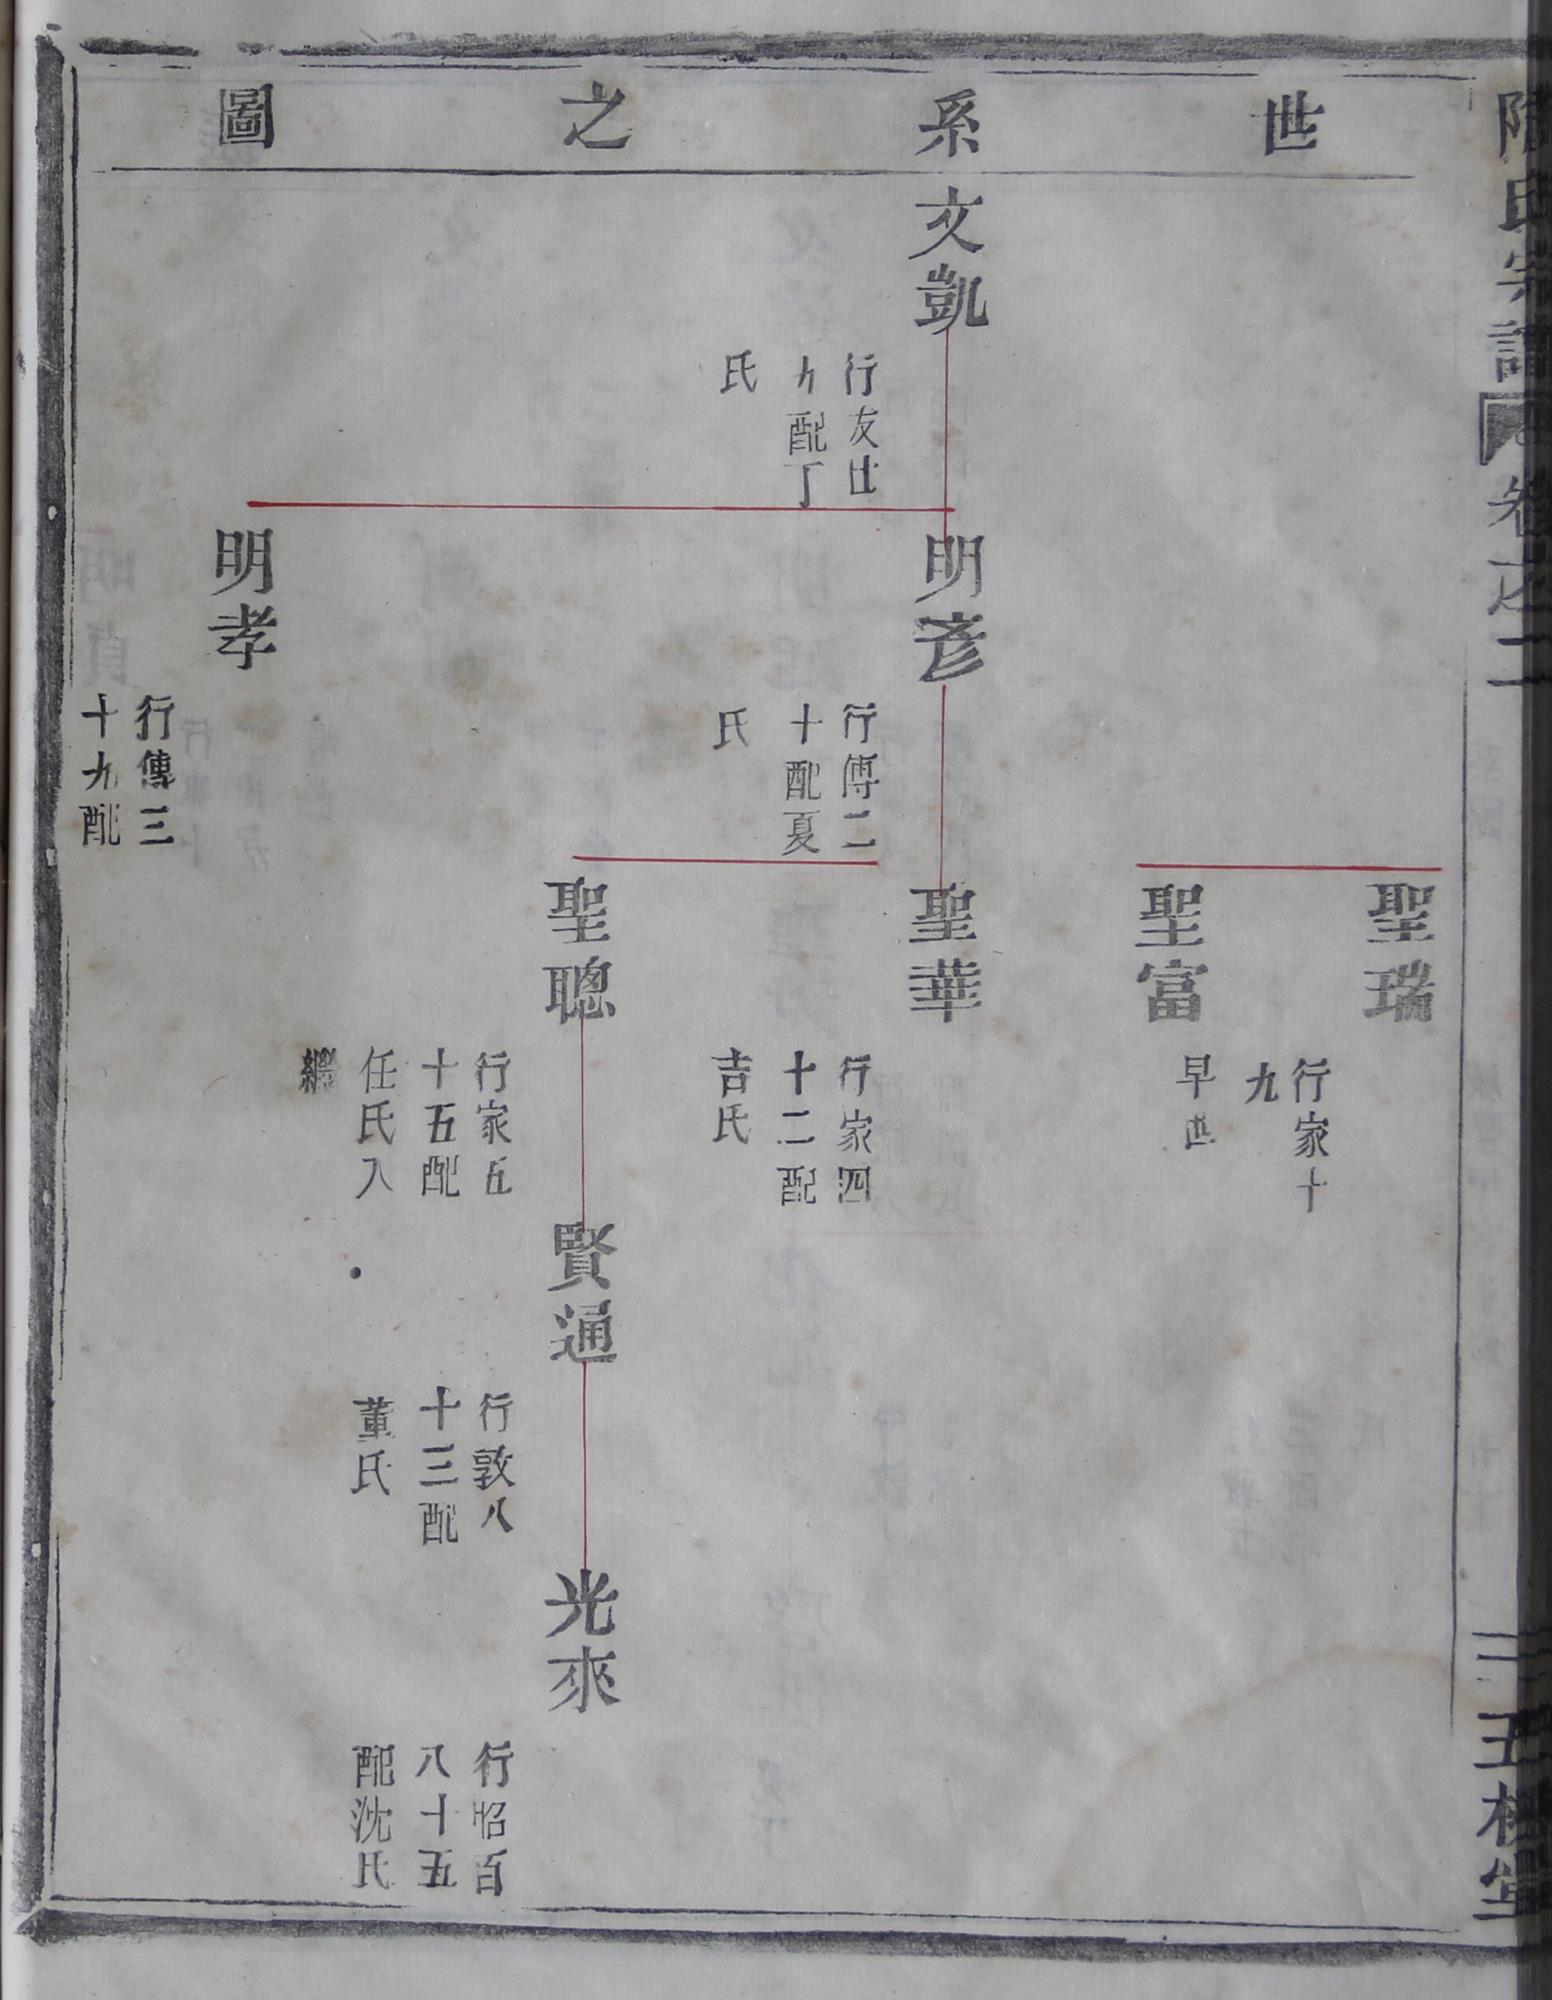 世系之圖
文凱
行友廿
九配丁
氏
明彦
行傳二
十配夏
氏
明孝
行傳三
十九配
聖瑞
行家十
九
聖富
早世
聖華
行家四
十二配
吉氏
聖聰
行家五
十五配
任氏入
繼
賢通
行敦八
十三配
董氏
光來
行昭百
八十五
配沈氏
氏宗譜
卷之二